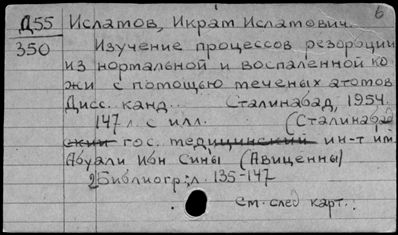 6
Д55 Исламов, Икрам Исламович.
350 Изучение процессов резорбции
из нормальной и воспаленной ко
жи с помощью меченых атомов
Дисс. канд.. Сталинабад, 1954.
147 л. с илл. (Сталинабад
ский гос. медицинский ин-т им.
Абуали Ибн Сины (Авиценны)
Библиогр; л. 135-147
См. след карт..